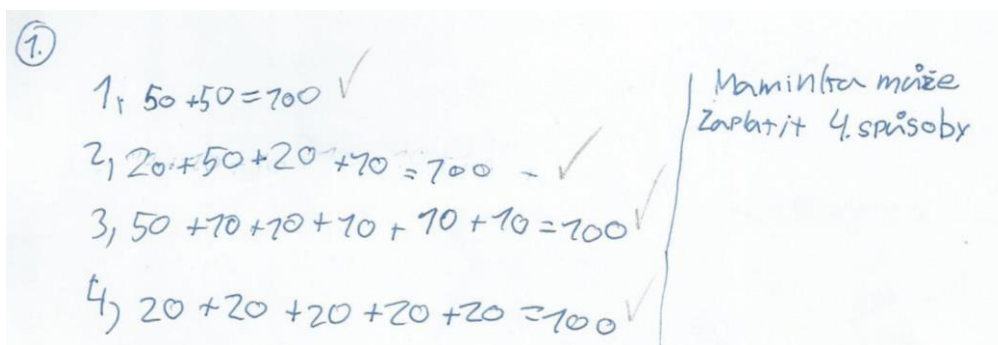 1.
1, 50+50=100 ✓
2, 20+50+20+10=100 - ✓
3, 50+10+10+10+10+10=100 ✓
4, 20+20+20+20+20=100 ✓
Maminka může
zaplatit 4.spůsoby